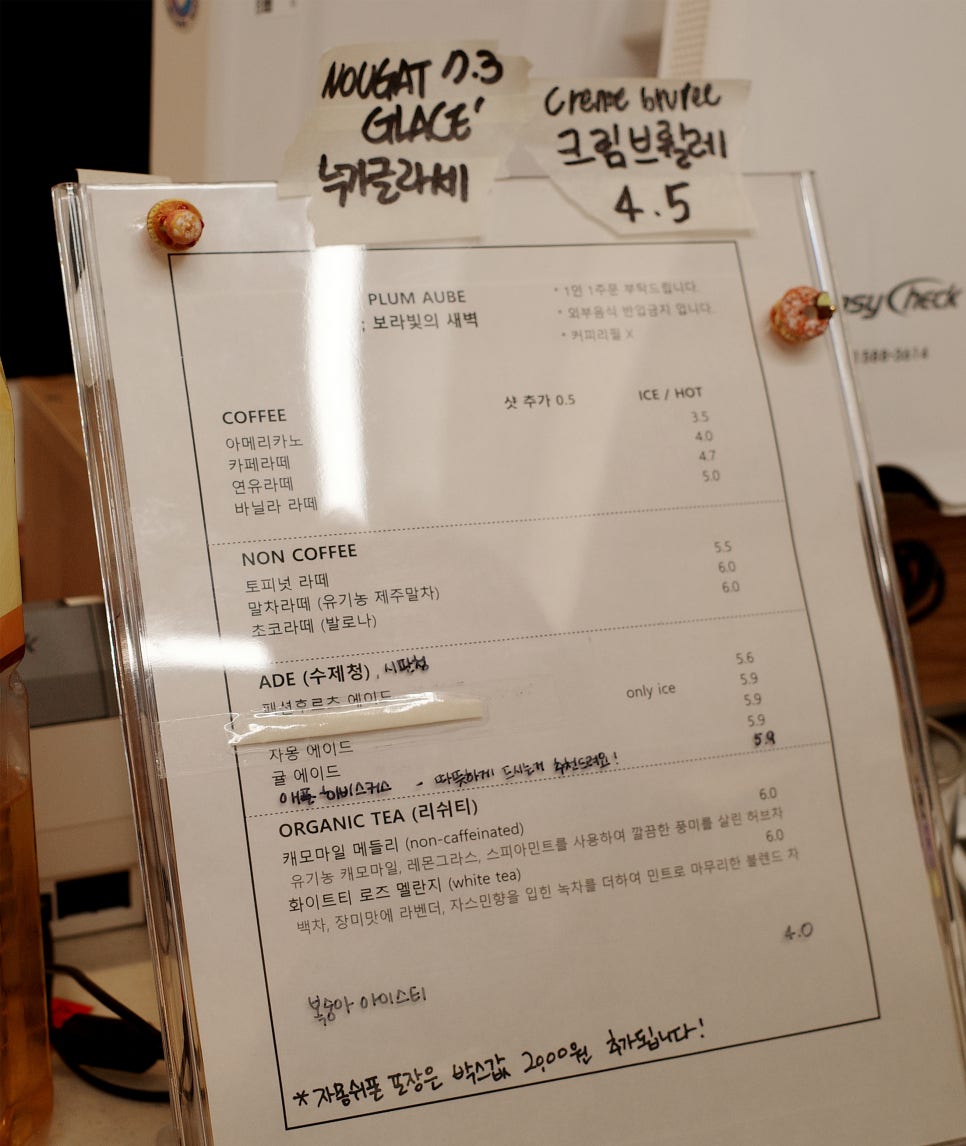 NOUGAT 7.3
GLACE'
누가글라쎄
Creme brulee
크림브륄레
4.5
PLUM AUBE
; 보라빛의 새벽
* 1인 1주문 부탁드립니다.
* 외부음식 반입금지 입니다.
* 커피리필 X
asyCheck
1588-5614
COFFEE 샷 추가 0.5 ICE / HOT
아메리카노 3.5
카페라떼 4.0
연유라떼 4.7
바닐라 라떼 5.0
NON COFFEE
토피넛 라떼 5.5
말차라떼 (유기농 제주말차) 6.0
초코라떼 (발로나) 6.0
ADE (수제청)
패션후르츠 에이드 5.6
only ice 5.9
자몽 에이드 5.9
귤 에이드 5.9
애플 히비스커스 - 따뜻하게 드시는거 추천드려요! 5.9
ORGANIC TEA (리쉬티)
캐모마일 메들리 (non-caffeinated) 6.0
유기농 캐모마일, 레몬그라스, 스피아민트를 사용하여 깔끔한 풍미를 살린 허브차
화이트티 로즈 멜란지 (white tea) 6.0
백차, 장미맛에 라벤더, 자스민향을 입힌 녹차를 더하여 민트로 마무리한 블렌드 차
복숭아 아이스티 4.0
* 자몽쉬폰 포장은 박스값 2,000원 추가됩니다!